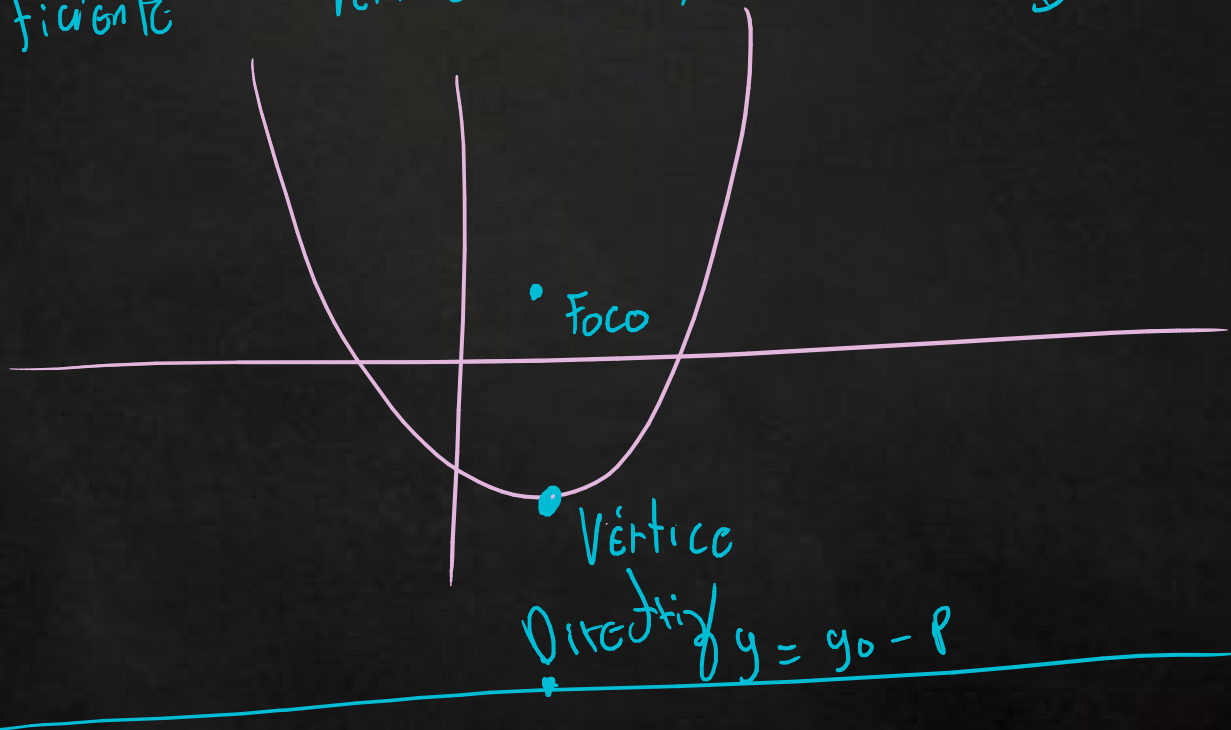 ficiente
Foco
Vértice
Directriz y = yo - p